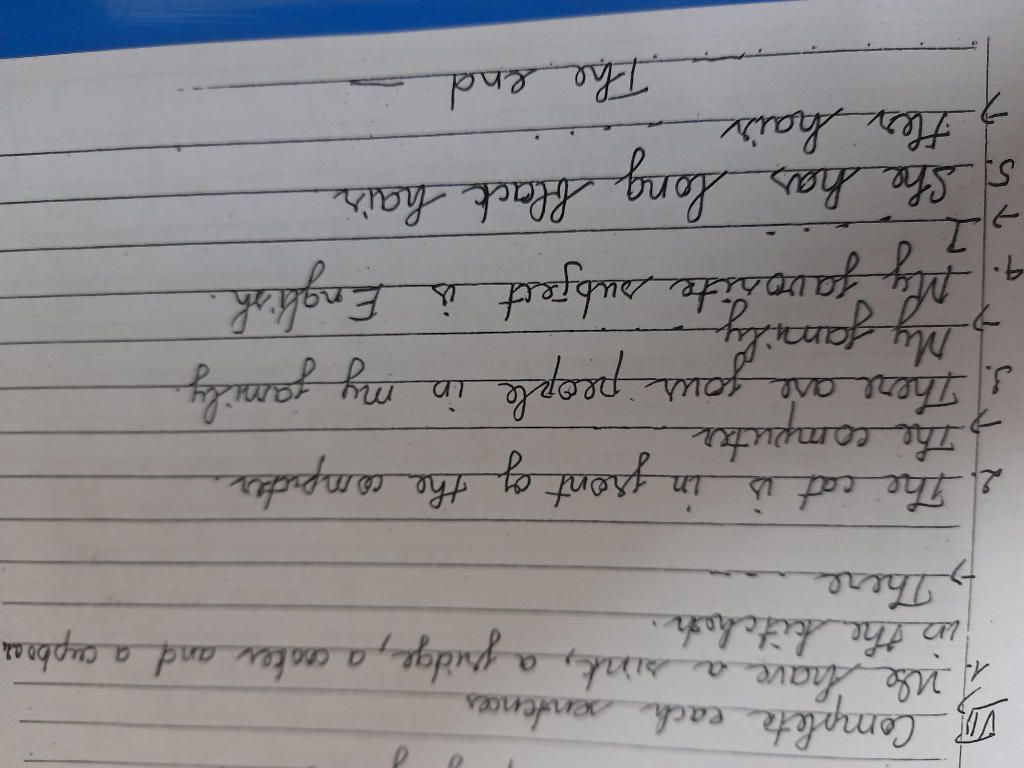 VII Complete each sentences
1. We have a sink, a fridge, a cooker and a cupboar
in the kitchen.
→ There ....
2. The cat is in front of the computer.
→ The computer
3. There are four people in my family.
→ My family ....
4. My favorite subject is English.
→ I ....
5. She has long black hair
→ Her hair ....
The end